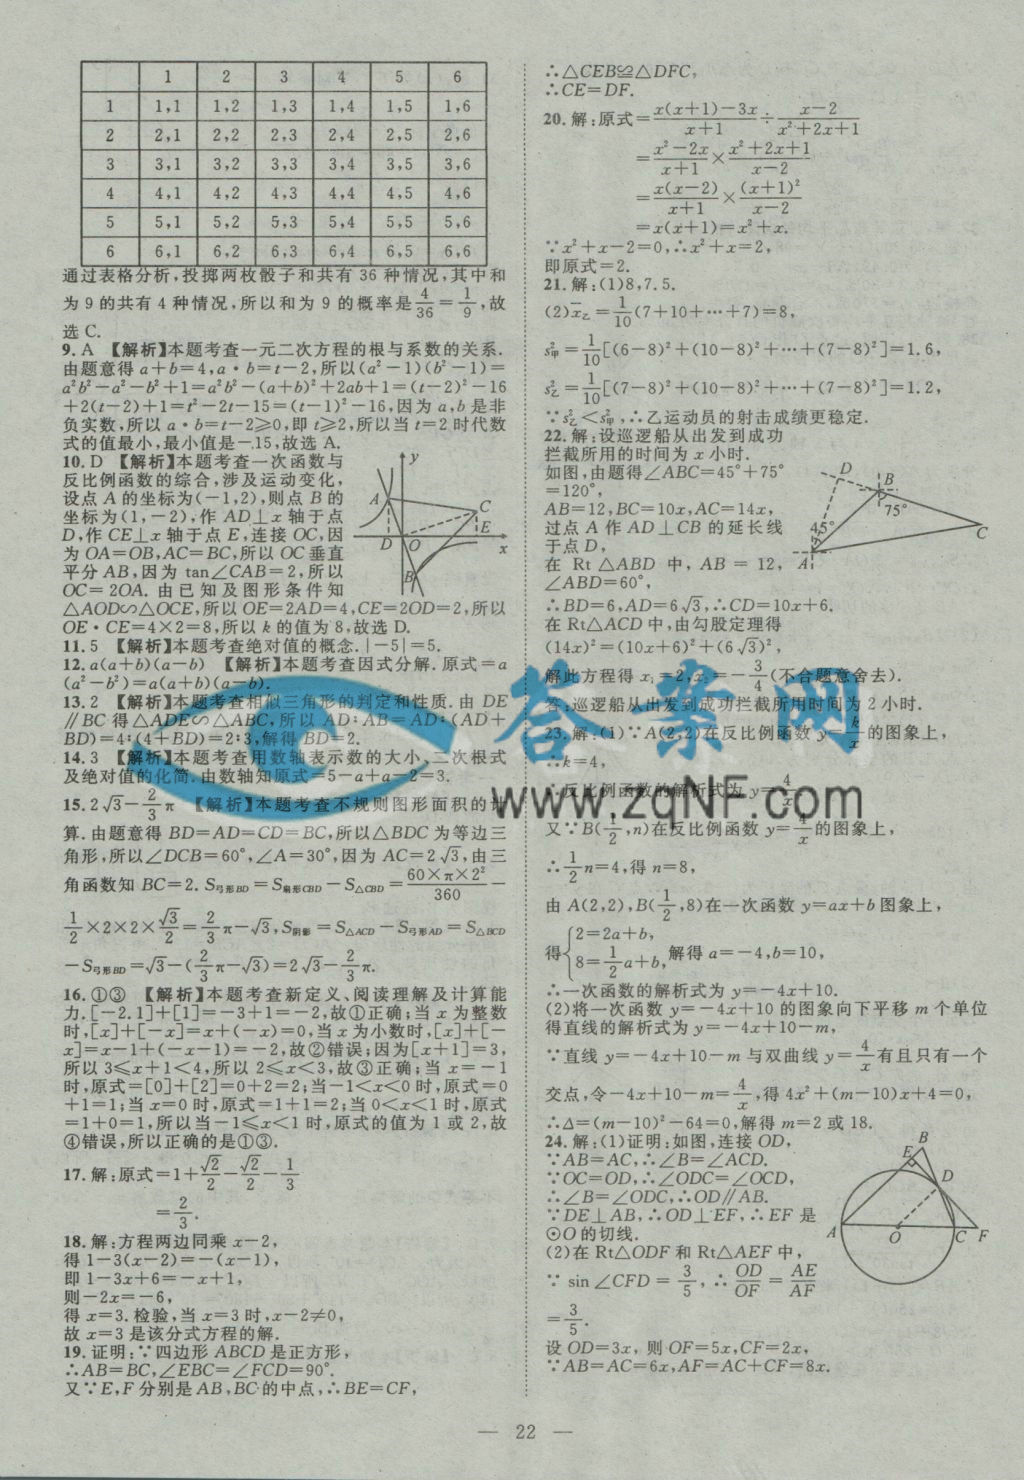 1 2 3 4 5 6
1 1,1 1,2 1,3 1,4 1,5 1,6
2 2,1 2,2 2,3 2,4 2,5 2,6
3 3,1 3,2 3,3 3,4 3,5 3,6
4 4,1 4,2 4,3 4,4 4,5 4,6
5 5,1 5,2 5,3 5,4 5,5 5,6
6 6,1 6,2 6,3 6,4 6,5 6,6
通过表格分析,投掷两枚骰子和共有 36 种情况,其中和
为 9 的共有 4 种情况,所以和为 9 的概率是4/36=1/9,故
选 C.
9. A 【解析】本题考查一元二次方程的根与系数的关系.
由题意得 a+b=4,a·b=t-2,所以(a²-1)(b²-1)=
a²b²-a²-b²+1=a²b²-(a+b)²+2ab+1=(t-2)²-16
+2(t-2)+1=t²-2t-15=(t-1)²-16,因为 a,b 是非
负实数,所以 a·b=t-2≥0,即 t≥2,所以当 t=2 时代数
式的值最小,最小值是-15,故选 A.
10. D 【解析】本题考查一次函数与
反比例函数的综合,涉及运动变化,
设点 A 的坐标为(-1,2),则点 B 的
坐标为(1,-2),作 AD⊥x 轴于点
D,作 CE⊥x 轴于点 E,连接 OC,因
为 OA=OB,AC=BC,所以 OC 垂直
平分 AB,因为 tan∠CAB=2,所以
OC=2OA. 由已知及图形条件知
y
A
C
D O E x
B
△AOD∽△OCE,所以 OE=2AD=4,CE=2OD=2,所以
OE·CE=4×2=8,所以 k 的值为 8,故选 D.
11. 5 【解析】本题考查绝对值的概念. |-5|=5.
12. a(a+b)(a-b) 【解析】本题考查因式分解. 原式=a
(a²-b²)=a(a+b)(a-b).
13. 2 【解析】本题考查相似三角形的判定和性质. 由 DE
∥BC 得△ADE∽△ABC,所以 AD:AB=AD:(AD+
BD)=4:(4+BD)=2:3,解得 BD=2.
14. 3 【解析】本题考查用数轴表示数的大小,二次根式
及绝对值的化简. 由数轴知原式=5-a+a-2=3.
15. 2√3-2/3π 【解析】本题考查不规则图形面积的计
算. 由题意得 BD=AD=CD=BC,所以△BDC 为等边三
角形,所以∠DCB=60°,∠A=30°,因为 AC=2√3,由三
角函数知 BC=2. S弓形BD=S扇形CBD-S△CBD=60×π×2²/360-
1/2×2×2×√3/2=2/3π-√3,S阴影=S△ACD-S弓形AD=S△BCD
-S弓形BD=√3-(2/3π-√3)=2√3-2/3π.
16. ①③ 【解析】本题考查新定义、阅读理解及计算能
力. [-2.1]+[1]=-3+1=-2,故①正确;当 x 为整数
时,[x]+[-x]=x+(-x)=0,当 x 为小数时,[x]+[-
x]=x-1+(-x-1)=-2,故②错误;因为[x+1]=3,
所以 3≤x+1<4,所以 2≤x<3,故③正确;当 x=-1
时,原式=[0]+[2]=0+2=2;当-1<x<0 时,原式=0
+1=1;当 x=0 时,原式=1+1=2;当 0<x<1 时,原式
=1+0=1,所以当-1≤x<1 时,原式的值为 1 或 2,故
④错误,所以正确的是①③.
17. 解:原式=1+√2/2-√2/2-1/3
=2/3.
18. 解:方程两边同乘 x-2,
得 1-3(x-2)=-(x-1),
即 1-3x+6=-x+1,
则-2x=-6,
得 x=3. 检验,当 x=3 时,x-2≠0,
故 x=3 是该分式方程的解.
19. 证明:∵四边形 ABCD 是正方形,
∴AB=BC,∠EBC=∠FCD=90°.
又∵E,F 分别是 AB,BC 的中点,∴BE=CF,
∴△CEB≌△DFC,
∴CE=DF.
20. 解:原式=x(x+1)-3x/x+1÷x-2/x²+2x+1
=x²-2x/x+1×x²+2x+1/x-2
=x(x-2)/x+1×(x+1)²/x-2
=x(x+1)=x²+x.
∵x²+x-2=0,∴x²+x=2,
即原式=2.
21. 解:(1)8,7.5.
(2)x̄乙=1/10(7+10+…+7)=8,
s²甲=1/10[(6-8)²+(10-8)²+…+(7-8)²]=1.6,
s²乙=1/10[(7-8)²+(10-8)²+…+(7-8)²]=1.2,
∵s²乙<s²甲,∴乙运动员的射击成绩更稳定.
22. 解:设巡逻船从出发到成功
拦截所用的时间为 x 小时.
如图,由题得∠ABC=45°+75°
=120°,
AB=12,BC=10x,AC=14x,
过点 A 作 AD⊥CB 的延长线
于点 D,
在 Rt△ABD 中,AB=12,
∠ABD=60°,
D
B
75°
45°
C
A
∴BD=6,AD=6√3,∴CD=10x+6.
在 Rt△ACD 中,由勾股定理得
(14x)²=(10x+6)²+(6√3)²,
解此方程得 x₁=2,x₂=-3/4(不合题意舍去).
答:巡逻船从出发到成功拦截所用时间为 2 小时.
23. 解:(1)∵A(2,2)在反比例函数 y=k/x的图象上,
∴k=4,
∴反比例函数的解析式为 y=4/x.
又∵B(1/2,n)在反比例函数 y=4/x的图象上,
∴1/2n=4,得 n=8,
由 A(2,2),B(1/2,8)在一次函数 y=ax+b 图象上,
得{2=2a+b, 8=1/2a+b,解得 a=-4,b=10,
∴一次函数的解析式为 y=-4x+10.
(2)将一次函数 y=-4x+10 的图象向下平移 m 个单位
得直线的解析式为 y=-4x+10-m,
∵直线 y=-4x+10-m 与双曲线 y=4/x有且只有一个
交点,令-4x+10-m=4/x,得 4x²+(m-10)x+4=0,
∴Δ=(m-10)²-64=0,解得 m=2 或 18.
24. 解:(1)证明:如图,连接 OD,
∵AB=AC,∴∠B=∠ACD.
∵OC=OD,∴∠ODC=∠OCD,
∴∠B=∠ODC,∴OD∥AB.
∵DE⊥AB,∴OD⊥EF,∴EF 是
⊙O 的切线.
(2)在 Rt△ODF 和 Rt△AEF 中,
∵sin∠CFD=3/5,∴OD/OF=AE/AF
=3/5.
B
E
D
A O C F
设 OD=3x,则 OF=5x,CF=2x,
∵AB=AC=6x,AF=AC+CF=8x.
答案网
www.zqNF.com
— 22 —